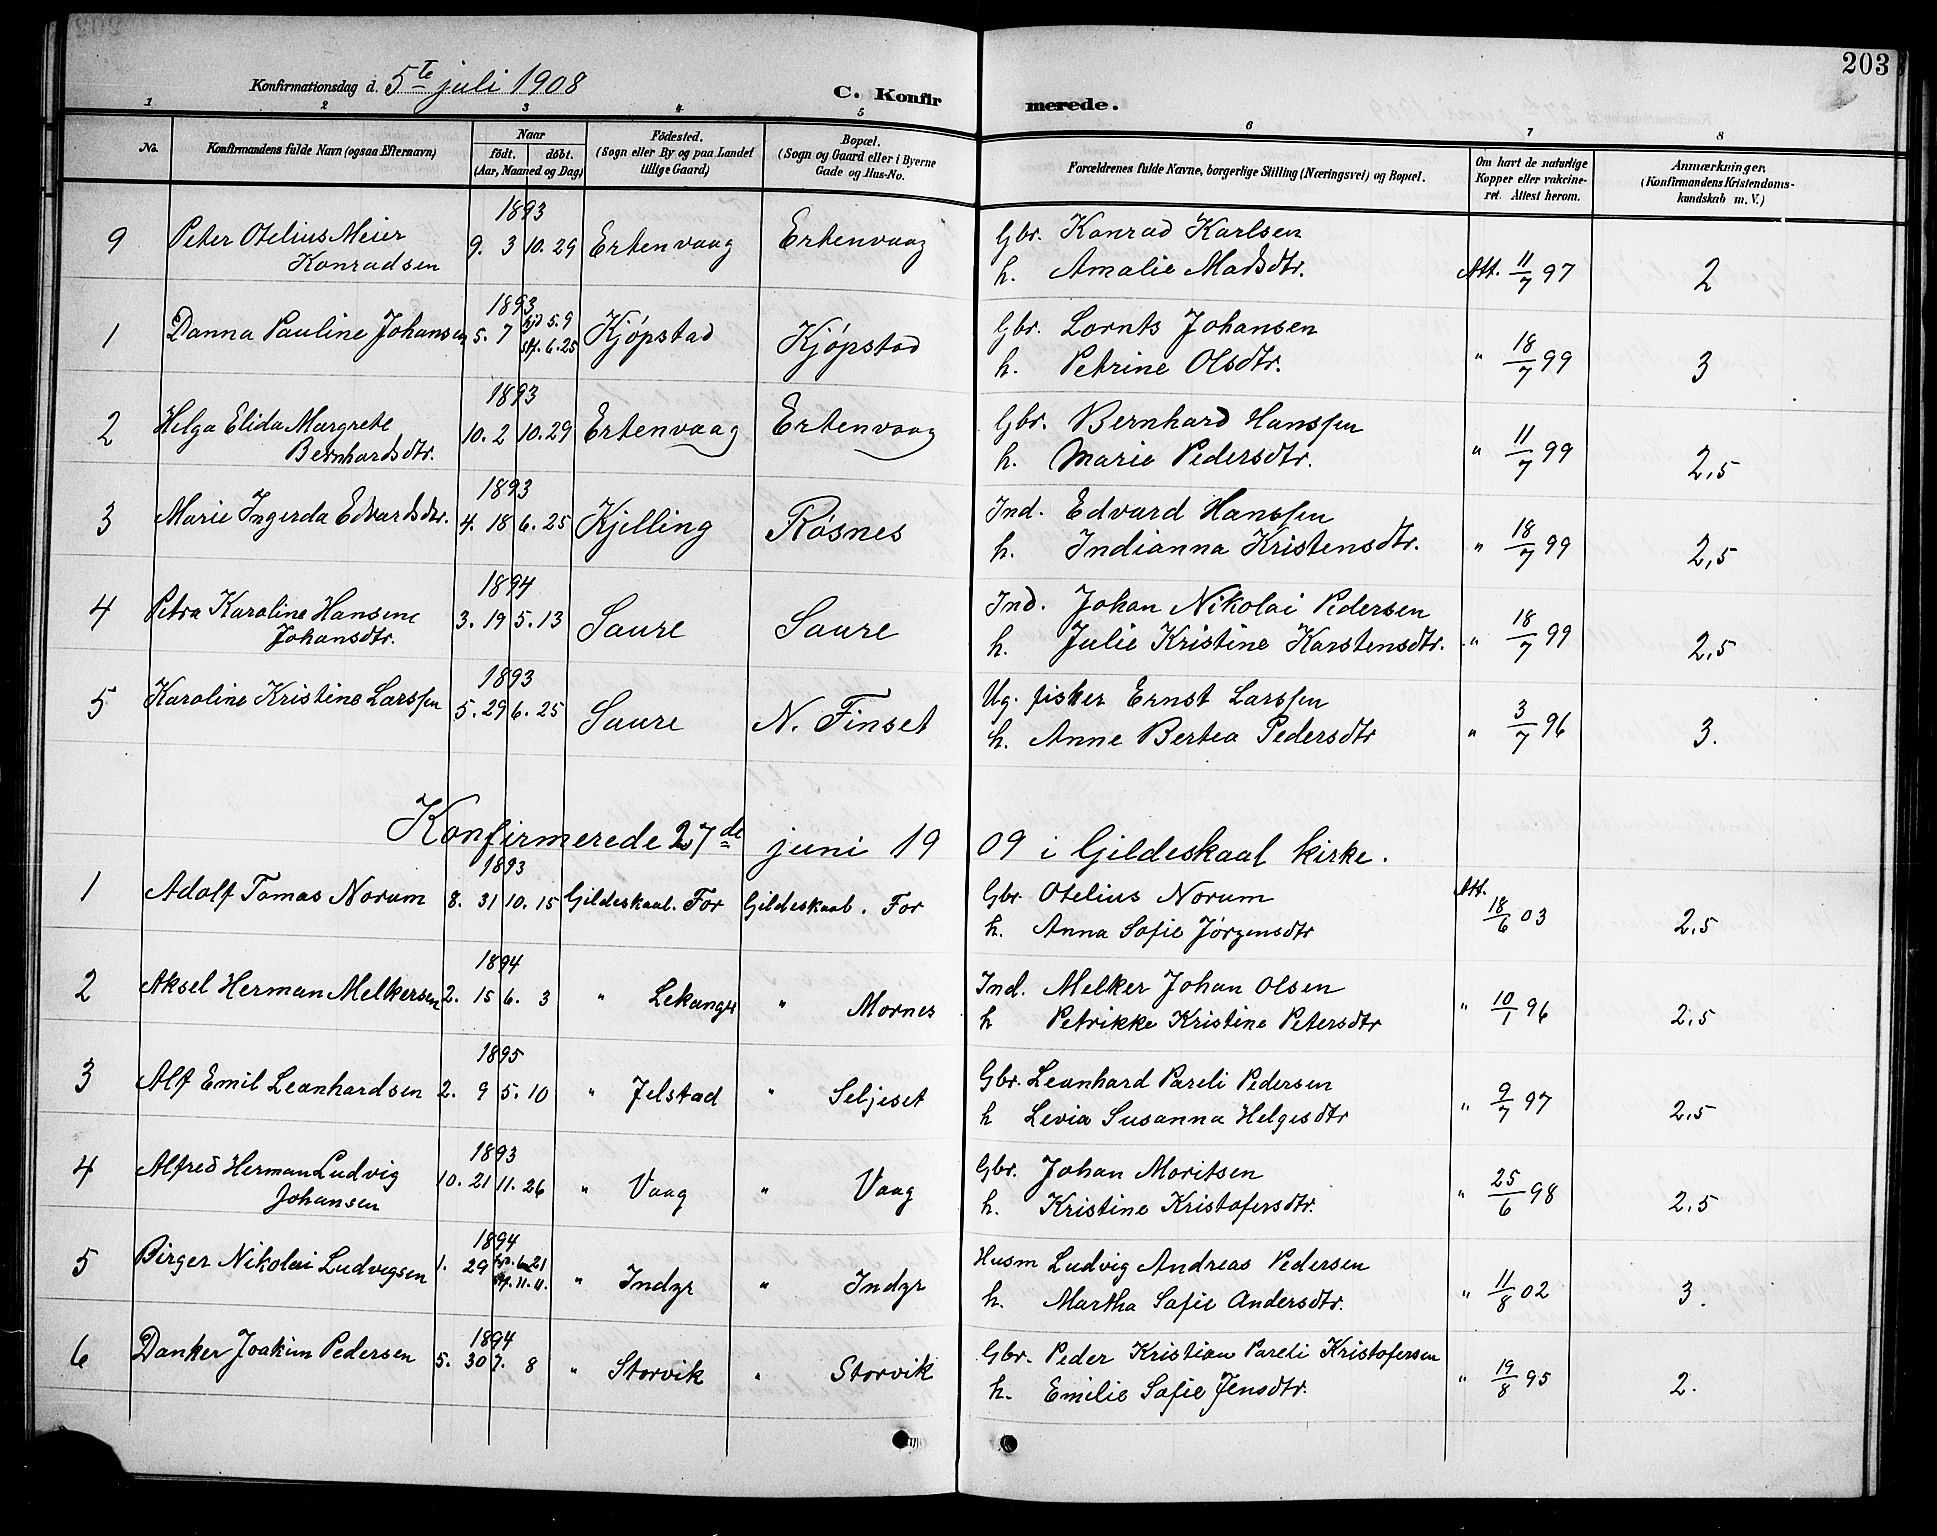 203
Konfirmationsdag d. 5te juli 1908 C. Konfir merede.
1 2 3 4 5 6 7 8
No. Konfirmandens fulde Navn (ogsaa Efternavn) Naar født. døbt. (Aar, Maaned og Dag) Fødested. (Sogn eller By og paa Landet tillige Gaard) Bopæl. (Sogn og Gaard eller i Byerne Gade og Hus-No. Forældrenes fulde Navne, borgerlige Stilling (Næringsvei) og Bopæl. Om havt de naturlige Kopper eller vakcineret. Attest herom. Anmærkninger. (Konfirmandens Kristendomskundskab m. V.)
1893
9 Peter Otelius Meier 9. 3 10. 29 Ertenvaag Ertenvaag Gbr. Konrad Karlsen
Konradsen h. Amalie Madsdtr. Att. 11/7 97 2
1893
1 Danna Pauline Johansen 5. 7 hjd 5. 9 Kjøpstad Kjøpstad Gbr. Lornts Johansen
stf. 6. 25 h. Petrine Olsdtr. " 18/7 99 3
1893
2 Helga Elida Margrete 10. 2 10. 29 Ertenvaag Ertenvaag Gbr. Bernhard Hanssen
Bernhardsdtr. h. Marie Pedersdtr. " 11/7 99 2,5
1893
3 Marie Ingerda Edvardsdtr. 4. 18 6. 25 Kjelling Røsnes Ind. Edvard Hanssen
h. Indianna Kristensdtr. " 18/7 99 2,5
1894
4 Petra Karoline Hansene 3. 19 5. 13 Saure Saure Ind. Johan Nikolai Pedersen
Johansdtr. h. Julie Kristine Karstensdtr. " 18/7 99 2,5
1893
5 Karoline Kristine Larssen 5. 29 6. 25 Saure N. Finset Ug. fisker Ernst Larssen
h. Anne Bertea Pedersdtr " 3/7 96 3.
Konfirmerede 27de juni 1909 i Gildeskaal kirke.
1893
1 Adolf Tomas Norum 8. 31 10. 15 Gildeskaal. For Gildeskaal. For Gbr. Otelius Norum Att.
h. Anna Sofie Jørgensdtr 18/6 03 2,5
1894
2 Aksel Herman Melkersen 2. 15 6. 3 " Lekanger " Mornes Ind. Melker Johan Olsen
h Petrikke Kristine Petersdtr " 10/1 96 2,5
1895
3 Alf Emil Leonhardsen 2. 9 5. 10 " Jelstad " Seljeset Gbr. Leonhard Pareli Pedersen
h Levia Susanna Helgesdtr " 9/7 97 2,5
1893
4 Alfred Herman Ludvig 10. 21 11. 26 " Vaag " Vaag Gbr. Johan Moritsen
Johansen h. Kristine Kristofersdtr. " 25/6 98 2,5
1894
5 Birger Nikolai Ludvigsen 1. 29 6. 21 " Indyr " Indyr Husm Ludvig Andreas Pedersen
stf. 11. 11. h. Martha Sofie Andersdtr. " 11/8 02 3.
1894
6 Danker Joakim Pedersen 5. 30 7. 8 " Storvik " Storvik Gbr. Peder Kristian Pareli Kristofersen
h. Emilie Sofie Jensdtr. " 19/8 95 2.